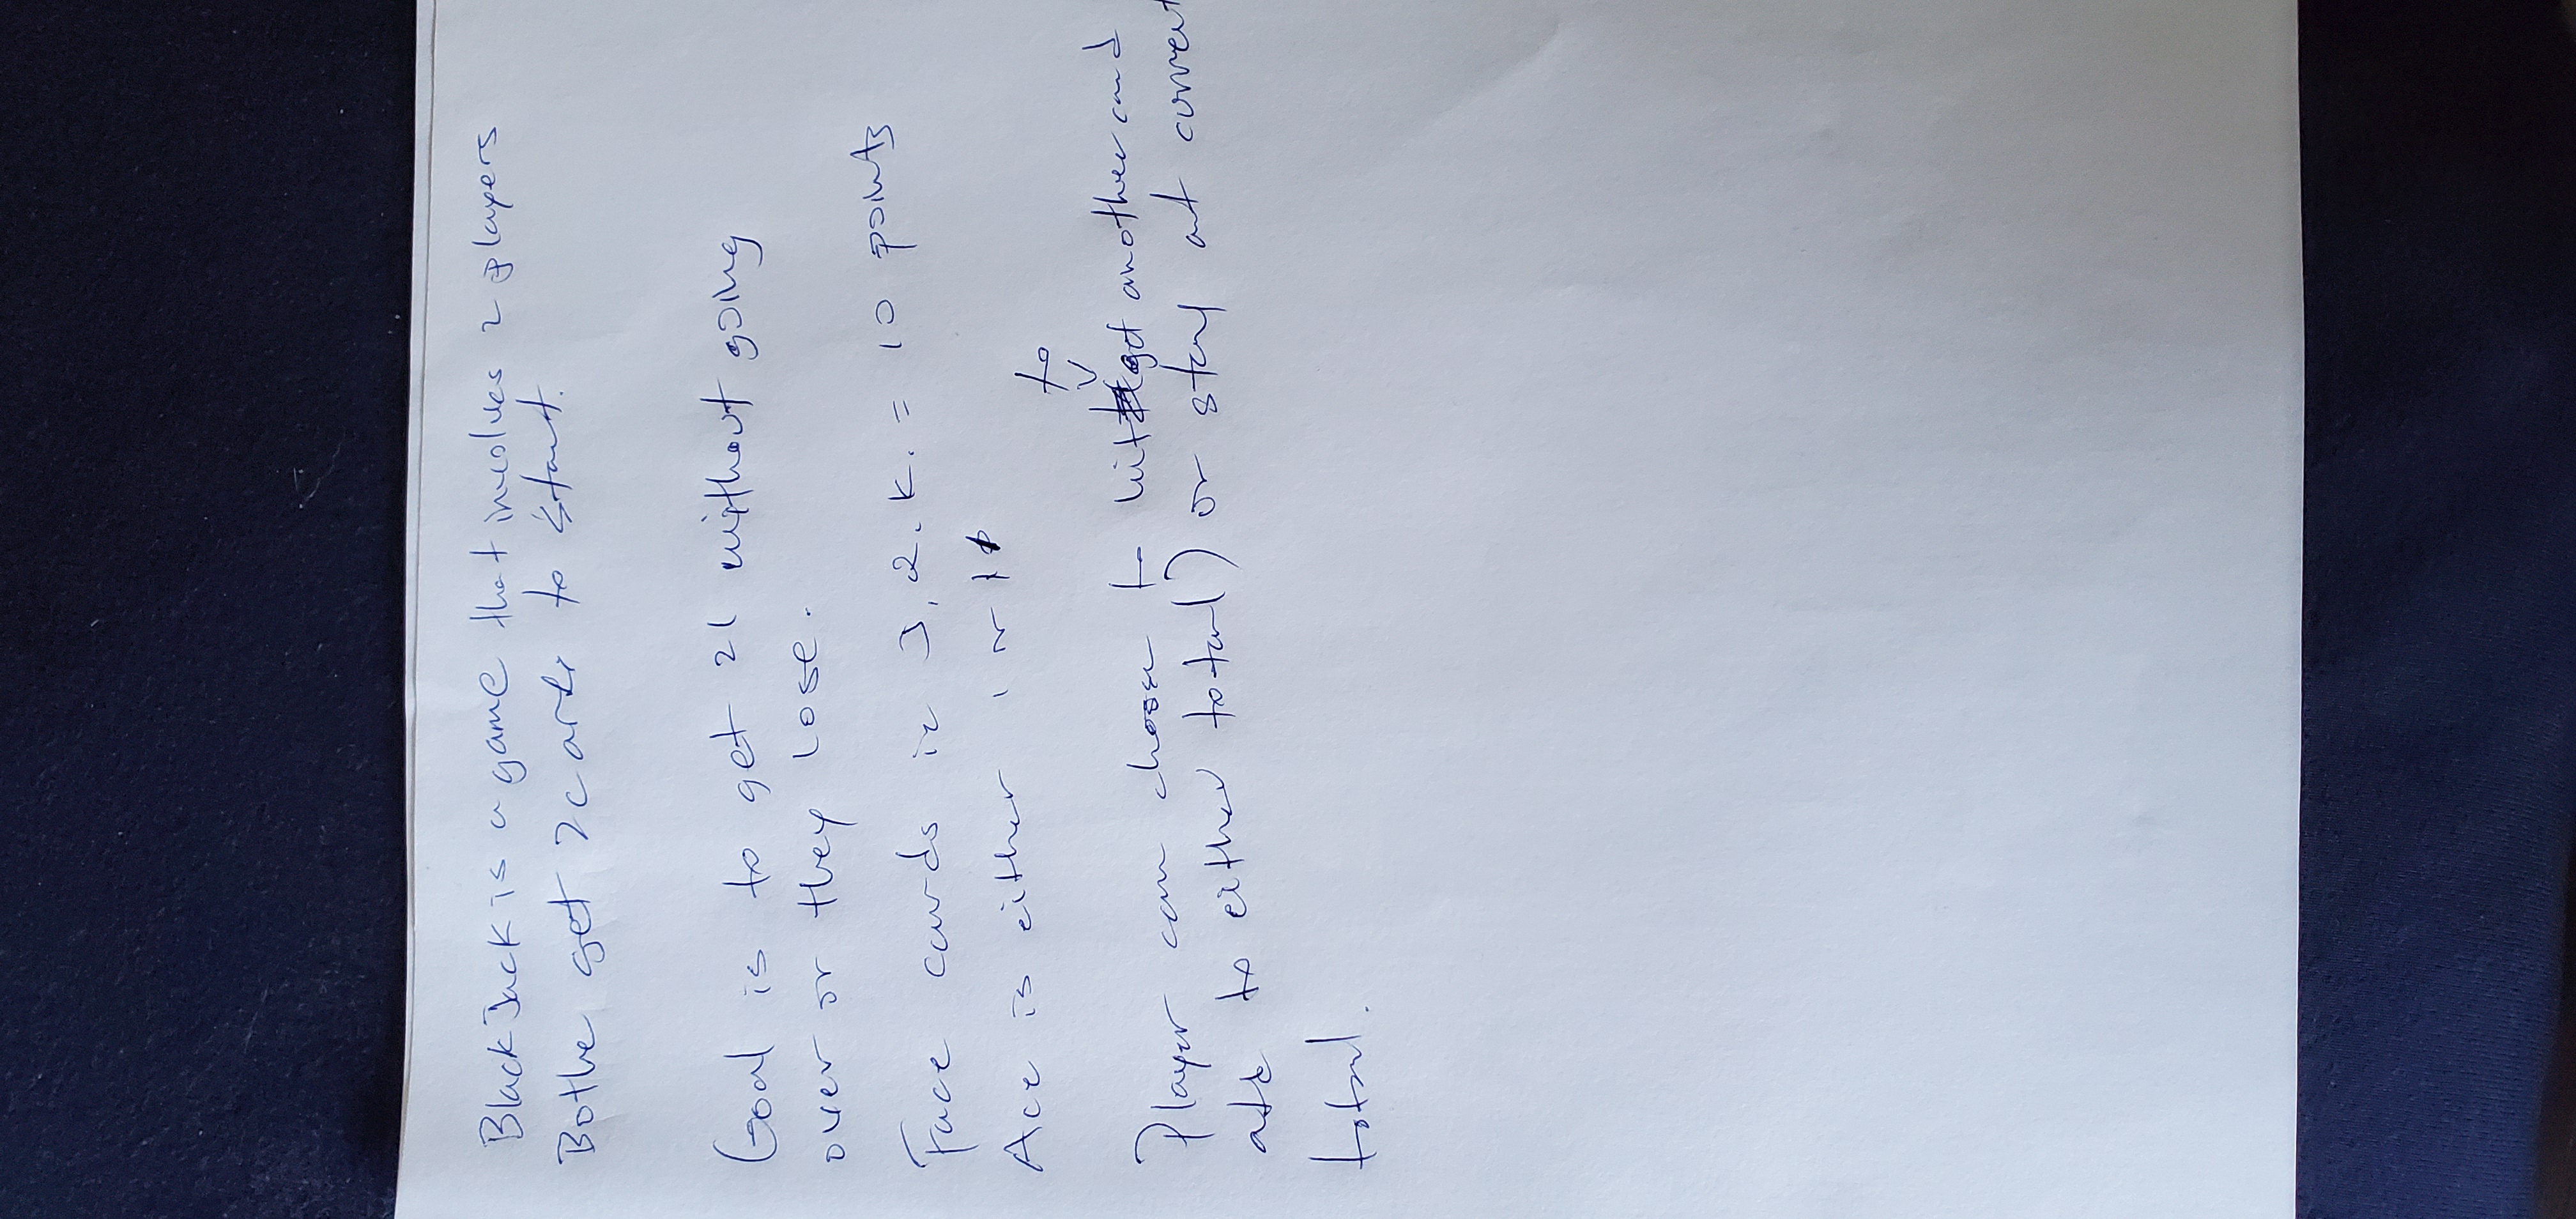 Black Jack is a game that involves 2 players
Bothe get 2 cards to start.
Goal is to get 21 without going
over or they lose.
Face cards ie J, Q, K. = 10 points
Ace is either 1 or 11
to
Player can choose to hit get another card
add to either total) or stay at current
total.